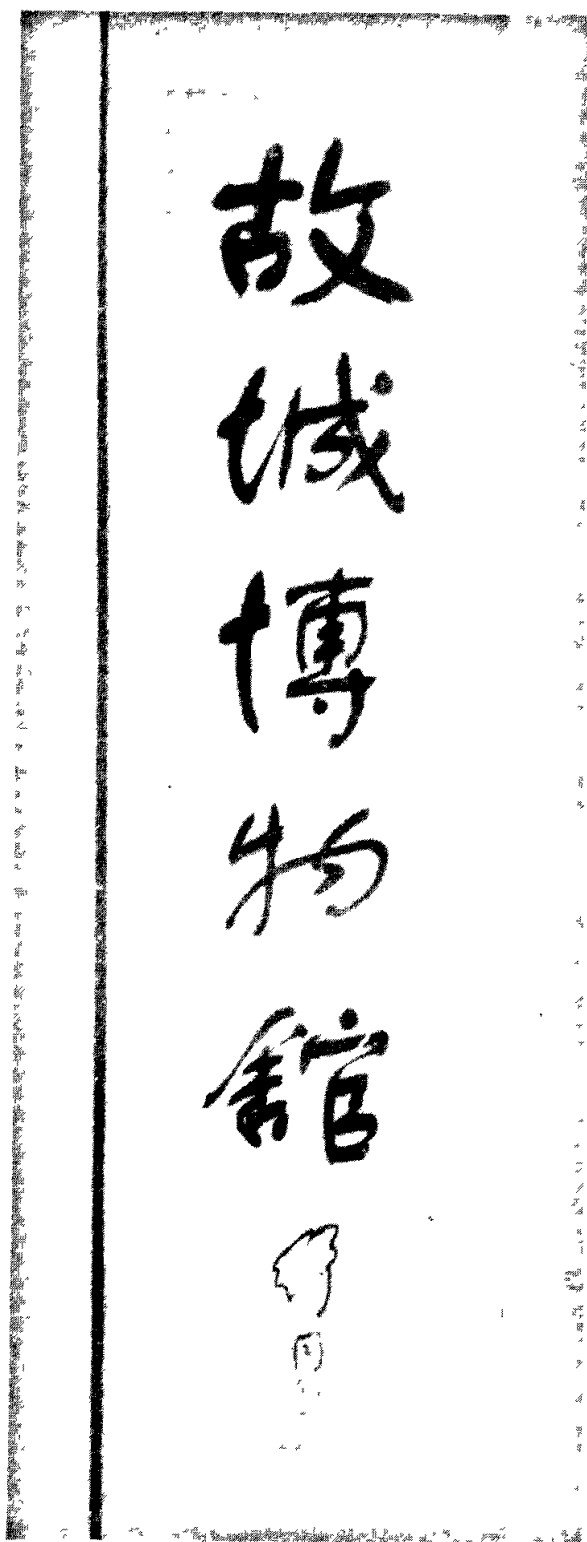 故城博物館